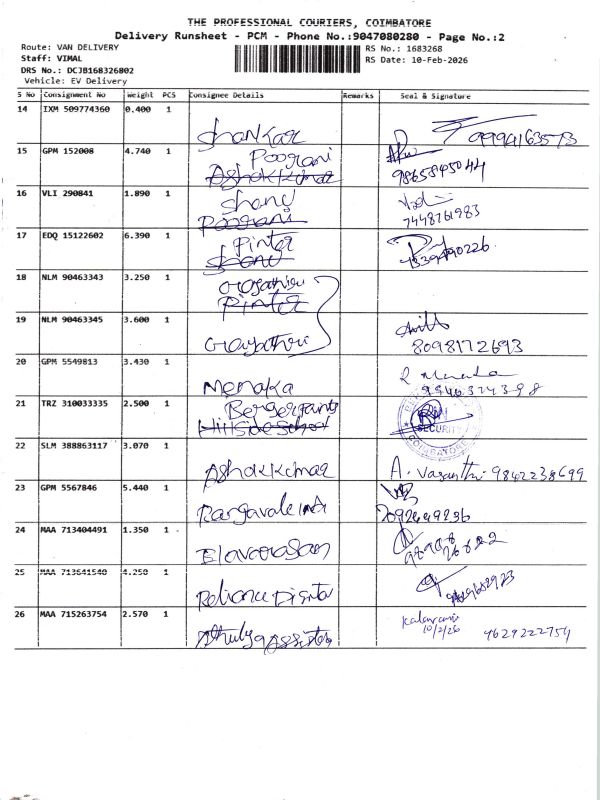 THE PROFESSIONAL COURIERS, COIMBATORE
Delivery Runsheet - PCM - Phone No.:9047080280 - Page No.:2
Route: VAN DELIVERY
RS No.: 1683268
Staff: VIMAL
RS Date: 10-Feb-2026
DRS No.: DCJB168326802
Vehicle: EV Delivery
S No Consignment No Weight PCS Consignee Details Remarks Seal & Signature
14 IXM 509774360 0.400 1
Shankar 9994163573
15 GPM 152008 4.740 1
Poorani
Ashokkumar 9865845044
16 VLI 290841 1.890 1
Shanu
Poorani 7448761983
17 EDQ 15122602 6.390 1
Pinter
Shanu
18 NLM 90463343 3.250 1
Gayathri
Pinter
19 NLM 90463345 3.600 1
Gayathri 8098172693
20 GPM 5549813 3.430 1
Menaka
21 TRZ 310033335 2.500 1
Bergerpaints
Hillside School
SECURITY
COIMBATORE
22 SLM 388863117 3.070 1
Ashokkumar A. Vasanthi 9842238699
23 GPM 5567846 5.440 1
24 MAA 713404491 1.350 1
Elavarasan
25 MAA 713641540 4.250 1
Reliance Digital
26 MAA 715263754 2.570 1
10/2/26 9629222754